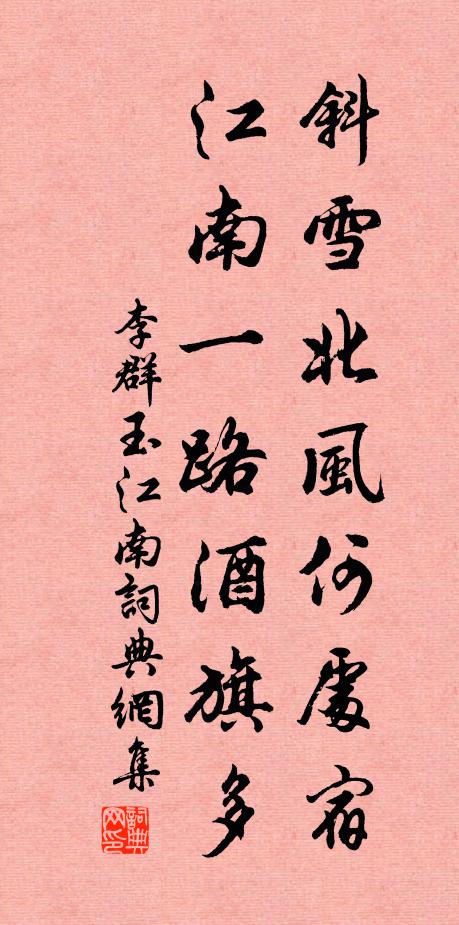 斜雪北風何處宿
江南一路酒旗多
李群玉江南詞典網集
詞典网印